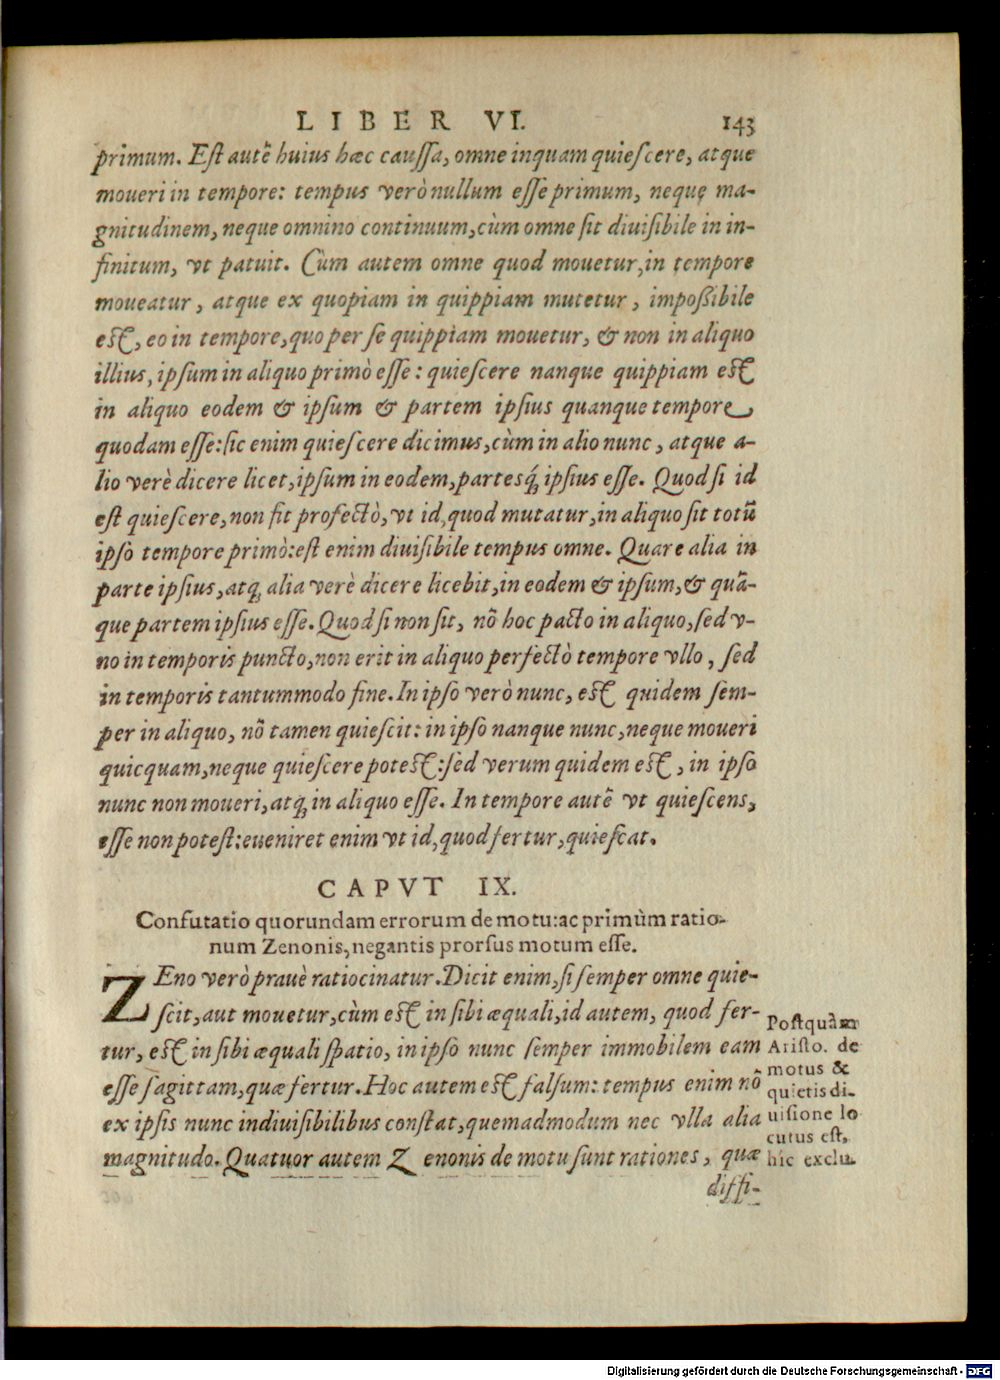 LIBER VI. 143
primum. Est autē huius hæc caussa, omne inquam quiescere, atque
moueri in tempore: tempus verò nullum esse primum, neque ma-
gnitudinem, neque omnino continuum, cùm omne sit diuisibile in in-
finitum, vt patuit. Cùm autem omne quod mouetur, in tempore
moueatur, atque ex quopiam in quippiam mutetur, impoßibile
est, eo in tempore, quo per se quippiam mouetur, & non in aliquo
illius, ipsum in aliquo primò esse: quiescere nanque quippiam est
in aliquo eodem & ipsum & partem ipsius quanque tempore
quodam esse: sic enim quiescere dicimus, cùm in alio nunc, atque a-
lio verè dicere licet, ipsum in eodem, partesq́; ipsius esse. Quod si id
est quiescere, non fit profectò, vt id, quod mutatur, in aliquo sit totū
ipso tempore primò: est enim diuisibile tempus omne. Quare alia in
parte ipsius, atq; alia verè dicere licebit, in eodem & ipsum, & quā-
que partem ipsius esse. Quod si non sit, nō hoc pacto in aliquo, sed v-
no in temporis puncto, non erit in aliquo perfectò tempore vllo, sed
in temporis tantummodo fine. In ipso verò nunc, est quidem sem-
per in aliquo, nō tamen quiescit: in ipso nanque nunc, neque moueri
quicquam, neque quiescere potest: sed verum quidem est, in ipso
nunc non moueri, atq; in aliquo esse. In tempore autē vt quiescens,
esse non potest: eueniret enim vt id, quod fertur, quiescat.
CAPVT IX.
Confutatio quorundam errorum de motu: ac primùm ratio-
num Zenonis, negantis prorsus motum esse.
ZEno verò prauè ratiocinatur. Dicit enim, si semper omne quie-
scit, aut mouetur, cùm est in sibi æquali, id autem, quod fer-
tur, est in sibi æquali spatio, in ipso nunc semper immobilem eam
esse sagittam, quæ fertur. Hoc autem est falsum: tempus enim nō
ex ipsis nunc indiuisibilibus constat, quemadmodum nec vlla alia
magnitudo. Quatuor autem Zenonis de motu sunt rationes, quæ
diffi-
Postquàm
Aristo. de
motus &
quietis di-
uisione lo
cutus est,
hîc exclu.
Digitalisierung gefördert durch die Deutsche Forschungsgemeinschaft - DFG